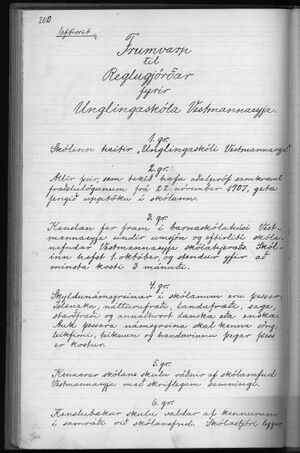 200
Eftirrit.
Frumvarp
til
Reglugjörðar
fyrir
Unglingaskóla Vestmannaeyja.
1. gr.
Skólinn heitir „Unglingaskóli Vestmannaeyja“.
2. gr.
Allir þeir, sem tekið hafa aðalpróf samkvæmt
fræðslulögunum frá 22. nóvember 1907, geta
fengið upptöku í skólann.
3. gr.
Kenslan fer fram í barnaskólahúsi Vest-
mannaeyja undir umsjón og eftirliti skóla-
nefndar Vestmannaeyja skólahjeraðs. Skól-
inn hefst 1. október, og stendur yfir að
minsta kosti 3 mánuði.
4. gr.
Skyldunámsgreinar í skólanum eru þessar:
íslenska, náttúrufræði, landafræði, saga,
stærðfræði og annaðhvort danska eða enska.
Auk þessara námsgreina skal kenna söng,
leikfimi, teiknun og handavinnu þegar þess
er kostur.
5. gr.
Kennarar skólans skulu ráðnir af skólanefnd
Vestmannaeyja með skriflegum samningi.
6. gr.
Kenslubækur skulu valdar af kennurum
í samráði við skólanefnd. Skólastjóri leggur